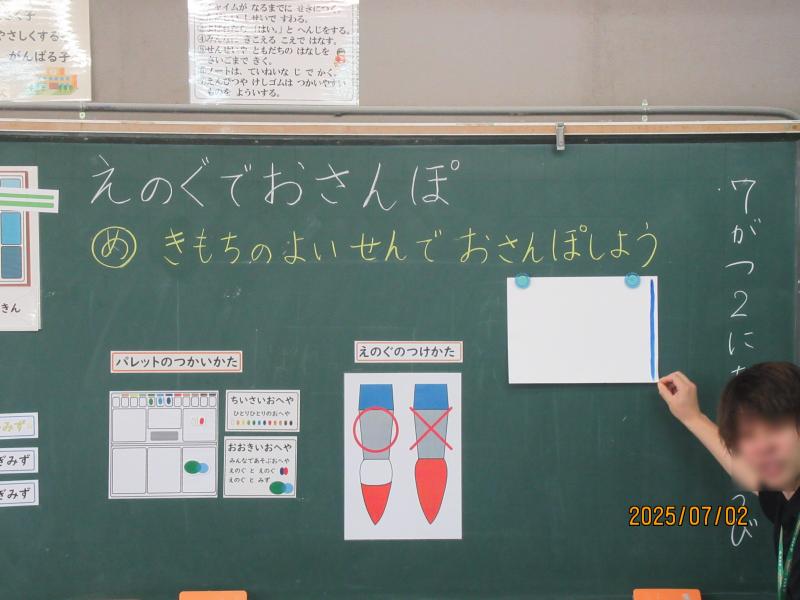 やさしくする子
がんばる子
チャイムが なるまでに せきにつく。
ただしい しせいで すわる。
よばれたら「はい。」と へんじをする。
④みんなに きこえる こえで はなす。
⑤せんせいや ともだちの はなしを
さいごまで きく。
⑥ノートは、ていねいな じ で かく。
⑦えんぴつや けしゴムは つかいやすい
ものを よういする。
えのぐでおさんぽ
め きもちのよい せんで おさんぽしよう
7がつ2に
び
パレットのつかいかた
ちいさいおへや
ひとりひとりのおへや
おおきいおへや
みんなであそぶおへや
えのぐ と えのぐ
えのぐ と みず
えのぐのつけかた
きん
みず
ぎみず
ぎみず
2025/07/02